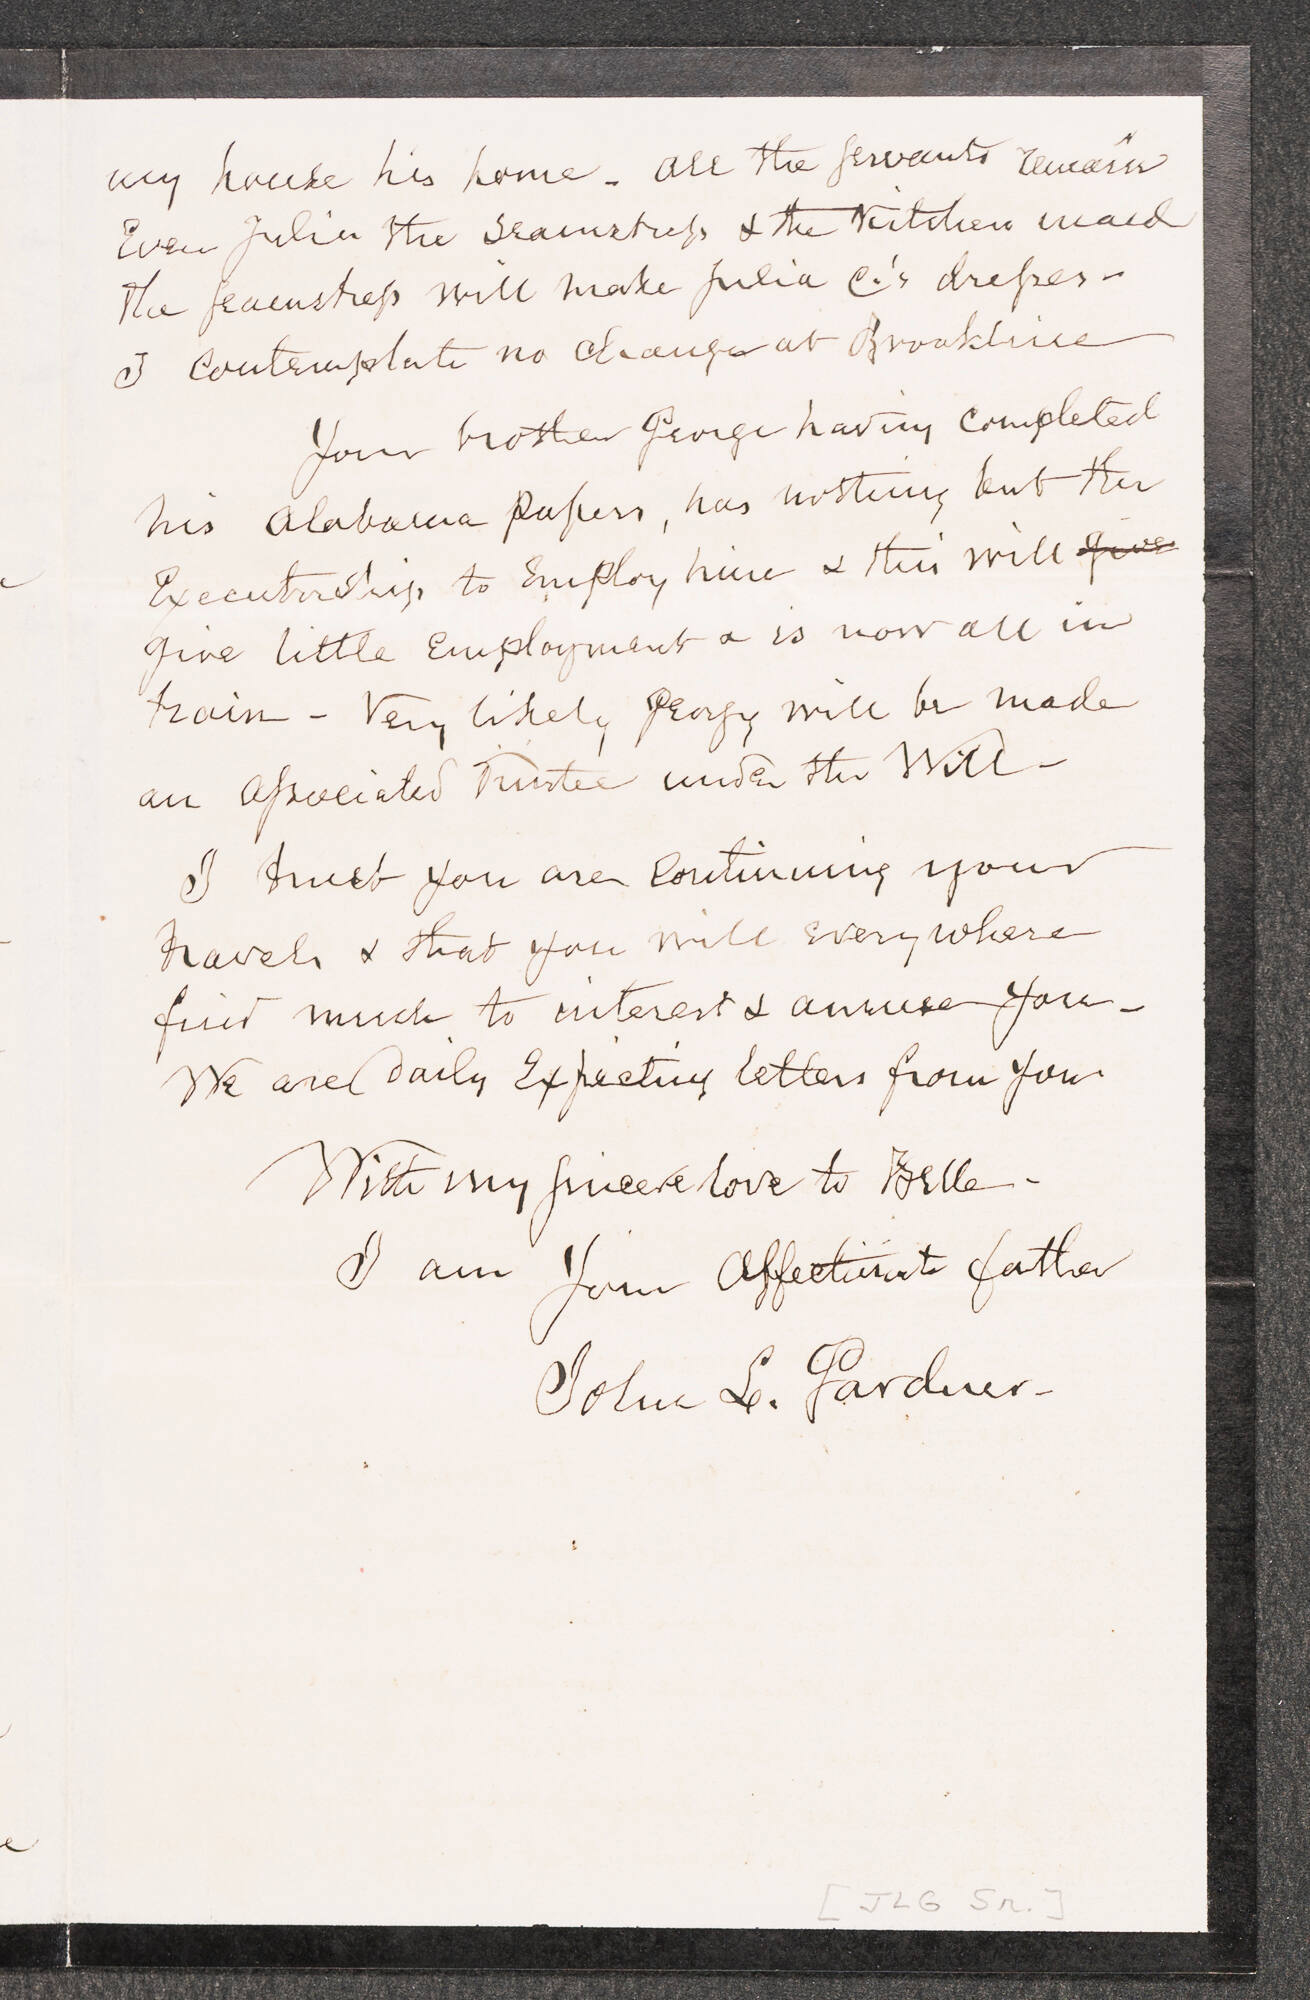 my house his home - all the servants remain
Even Julia the seamstress & the Kitchen maid
The seamstress will make Julia C.'s dresses -
I contemplate no change at Brookline
Your brother George having completed
his Alabama papers, has nothing but the
Executorship to Employ him & this will give
give little Employment & is now all in
train - Very likely Georgy will be made
an Associated Trustee under the Will -
I trust you are continuing your
travels & that you will everywhere
find much to interest & amuse you -
We are daily Expecting letters from you
With my sincere love to Belle -
I am Your Affectionate father
John L. Gardner -
[JLG Sr.]